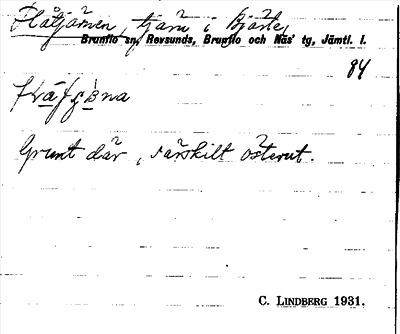 Flåtjärnen, tjärn i Bjärte,
Brunflo sn, Revsunds, Brunflo och Näs' tg, Jämtl. l.
84
Grunt där, särskilt österut.
C. LINDBERG 1931.